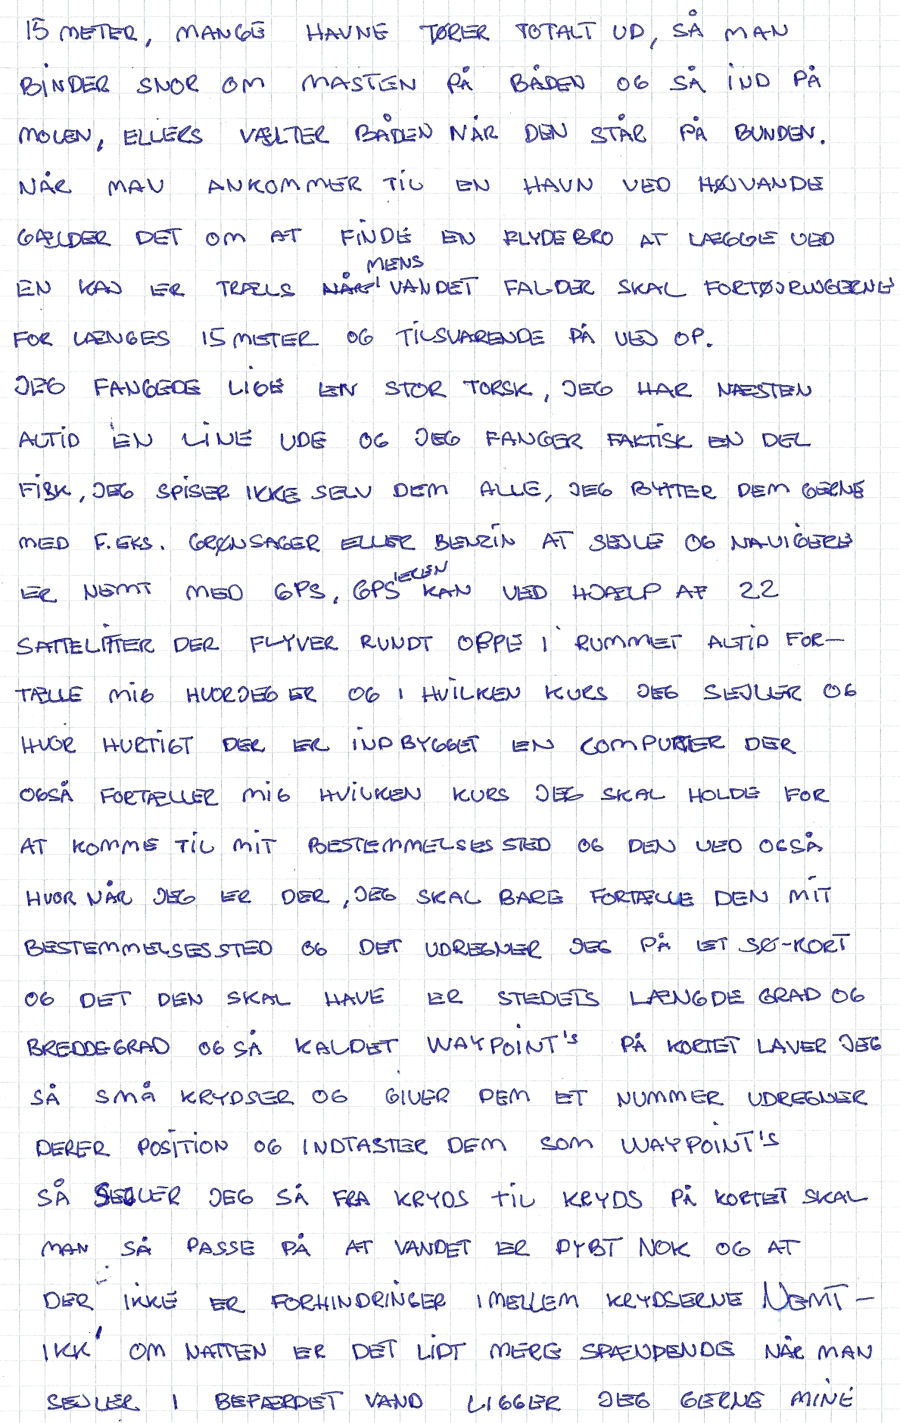 15 METER, MANGE HAVNE TØRER TOTALT UD, SÅ MAN
BINDER SNOR OM MASTEN PÅ BÅDEN OG SÅ IND PÅ
MOLEN, ELLERS VÆLTER BÅDEN NÅR DEN STÅR PÅ BUNDEN.
NÅR MAN ANKOMMER TIL EN HAVN VED HØJVANDE
GÆLDER DET OM AT FINDE EN FLYDEBRO AT LÆGGE VED
MENS
EN KAJ ER TRÆLS NÅR VANDET FALDER SKAL FORTØJRINGERNE
FOR LÆNGES 15 METER OG TILSVARENDE PÅ VEJ OP.
JEG FANGEDE LIGE EN STOR TORSK, JEG HAR NÆSTEN
ALTID EN LINE UDE OG JEG FANGER FAKTISK EN DEL
FISK, JEG SPISER IKKE SELV DEM ALLE, JEG BYTTER DEM GERNE
MED F.EKS. GRØNSAGER ELLER BENZIN AT SEJLE OG NAVIGERE
ER NEMT MED GPS, GPS'EREN KAN VED HJÆLP AF 22
SATTELITTER DER FLYVER RUNDT OPPE I RUMMET ALTID FOR-
TÆLLE MIG HVOR JEG ER OG I HVILKEN KURS JEG SEJLER OG
HVOR HURTIGT DER ER INDBYGGET EN COMPUTER DER
OGSÅ FORTÆLLER MIG HVILKEN KURS JEG SKAL HOLDE FOR
AT KOMME TIL MIT BESTEMMELSESSTED OG DEN VED OGSÅ
HVOR NÅR JEG ER DER, JEG SKAL BARE FORTÆLLE DEN MIT
BESTEMMELSESSTED OG DET UDREGNER JEG PÅ ET SØ-KORT
OG DET DEN SKAL HAVE ER STEDETS LÆNGDE GRAD OG
BREDDEGRAD OGSÅ KALDET WAYPOINT'S PÅ KORTET LAVER JEG
SÅ SMÅ KRYDSER OG GIVER DEM ET NUMMER UDREGNER
DERER POSITION OG INDTASTER DEM SOM WAYPOINT'S
SÅ SEJLER JEG SÅ FRA KRYDS TIL KRYDS PÅ KORTET SKAL
MAN SÅ PASSE PÅ AT VANDET ER DYBT NOK OG AT
DER IKKE ER FORHINDRINGER IMELLEM KRYDSERNE NEMT-
IKK' OM NATTEN ER DET LIDT MERE SPÆNDENDE NÅR MAN
SEJLER I BEFÆRDET VAND LIGGER JEG GERNE MINE